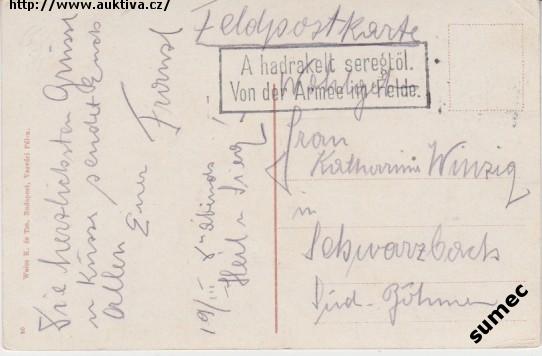 http://www.auktiva.cz/
Feldpostkarte
A hadrakelt seregtől.
Von der Armee im Felde.
Frau
Katharina Winzig
in
Schwarzbach
Süd-Böhmen
Die herzlichsten Grüsse
u Küsse sendet Euch
allen Euer Franzl
19/III
Heil u Sieg!
Weiss K. és Tsa, Budapest, Vaczi
sumec